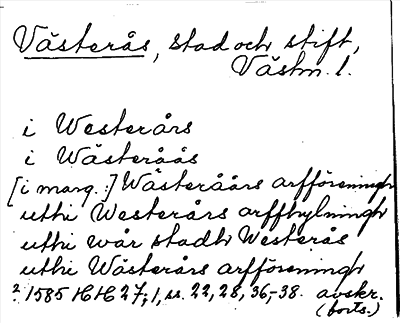 Västerås, stad och stift,
Västm. l.
i Westerårs
i Wästeråås
[i marg.:] Wästeråårs arfföreningh
uthi Westerårs arffhylningh
uthi wår stadh Westerås
uthi Wästerårs arfföreningh
2 1585 HH 27:1, ss. 22, 28, 36-38. avskr.
(forts.)